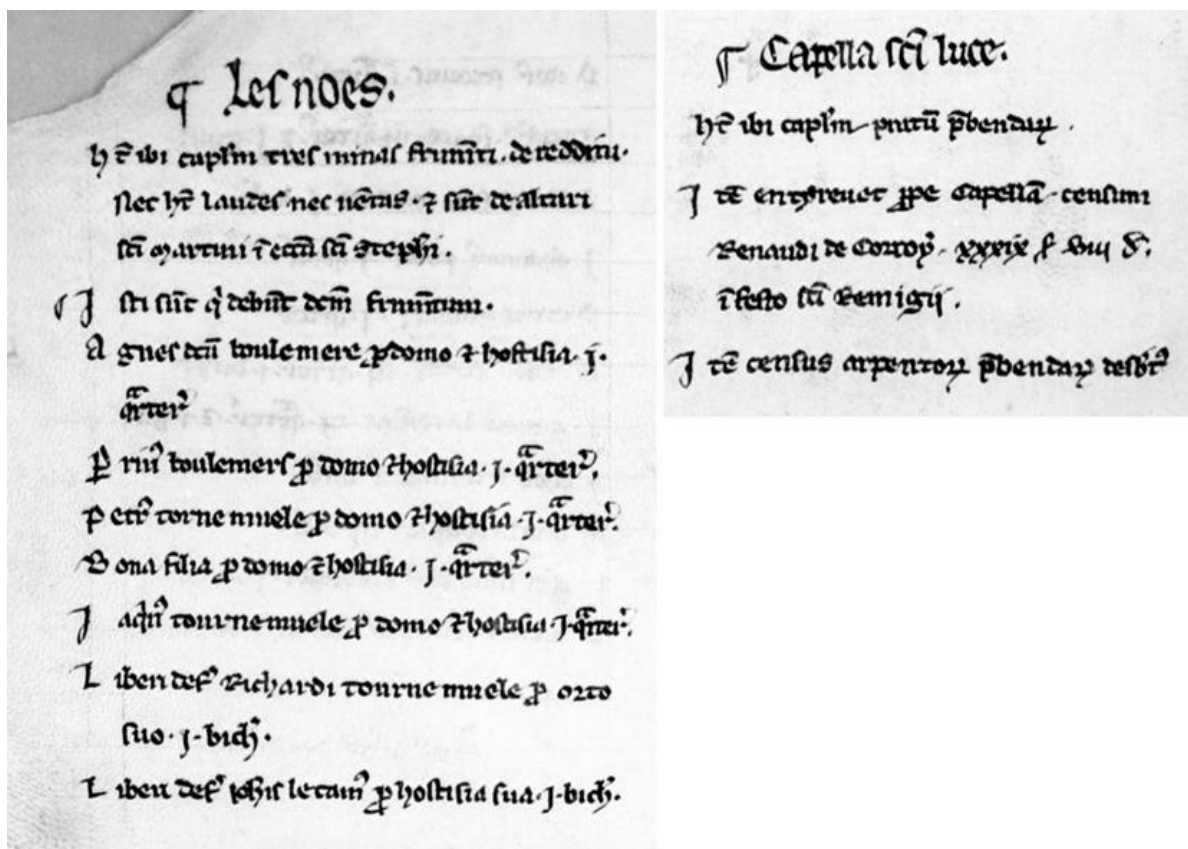 ¶ Les noes.
hr̄ ibi capl'm tres minas frum̄ti. de redditu.
Nec hr̄ laudes nec uētas. ⁊ sūt de altari
sc̄i Martini ī ecc̄ia sc̄i Steph̄i.
¶ Isti sūt q̇ debūt dc̄m frum̄tum.
Agnes dc̄a boulemere ꝓ domo ⁊ hostisia. j.
q̄rter᷒.
boulemers ꝓ domo ⁊ hostisia. j. q̄rter᷒.
Petr᷒ tornemuele ꝓ domo ⁊ hostisia. j. q̄rter᷒.
Bona filia ꝓ domo ⁊ hostisia. j. q̄rter᷒.
Jaq̇n᷒ tournemuele ꝓ domo ⁊ hostisia j. q̄rter᷒.
Liberi def᷒ Richardi tournemuele ꝓ orto
suo. j. bich᷒.
Liberi def᷒ Joh̄is ꝓ hostisia sua. j. bich᷒.
¶ Capella sc̄i luce.
hr̄ ibi capl'm pratū p̄bendaꝝ.
Itē ꝓpe Capellā censum
Renaudi de Corroy. xxxix s̄ viii d᷒.
ī festo sc̄i Remigii.
Itē census arpentoꝝ p̄bendaꝝ